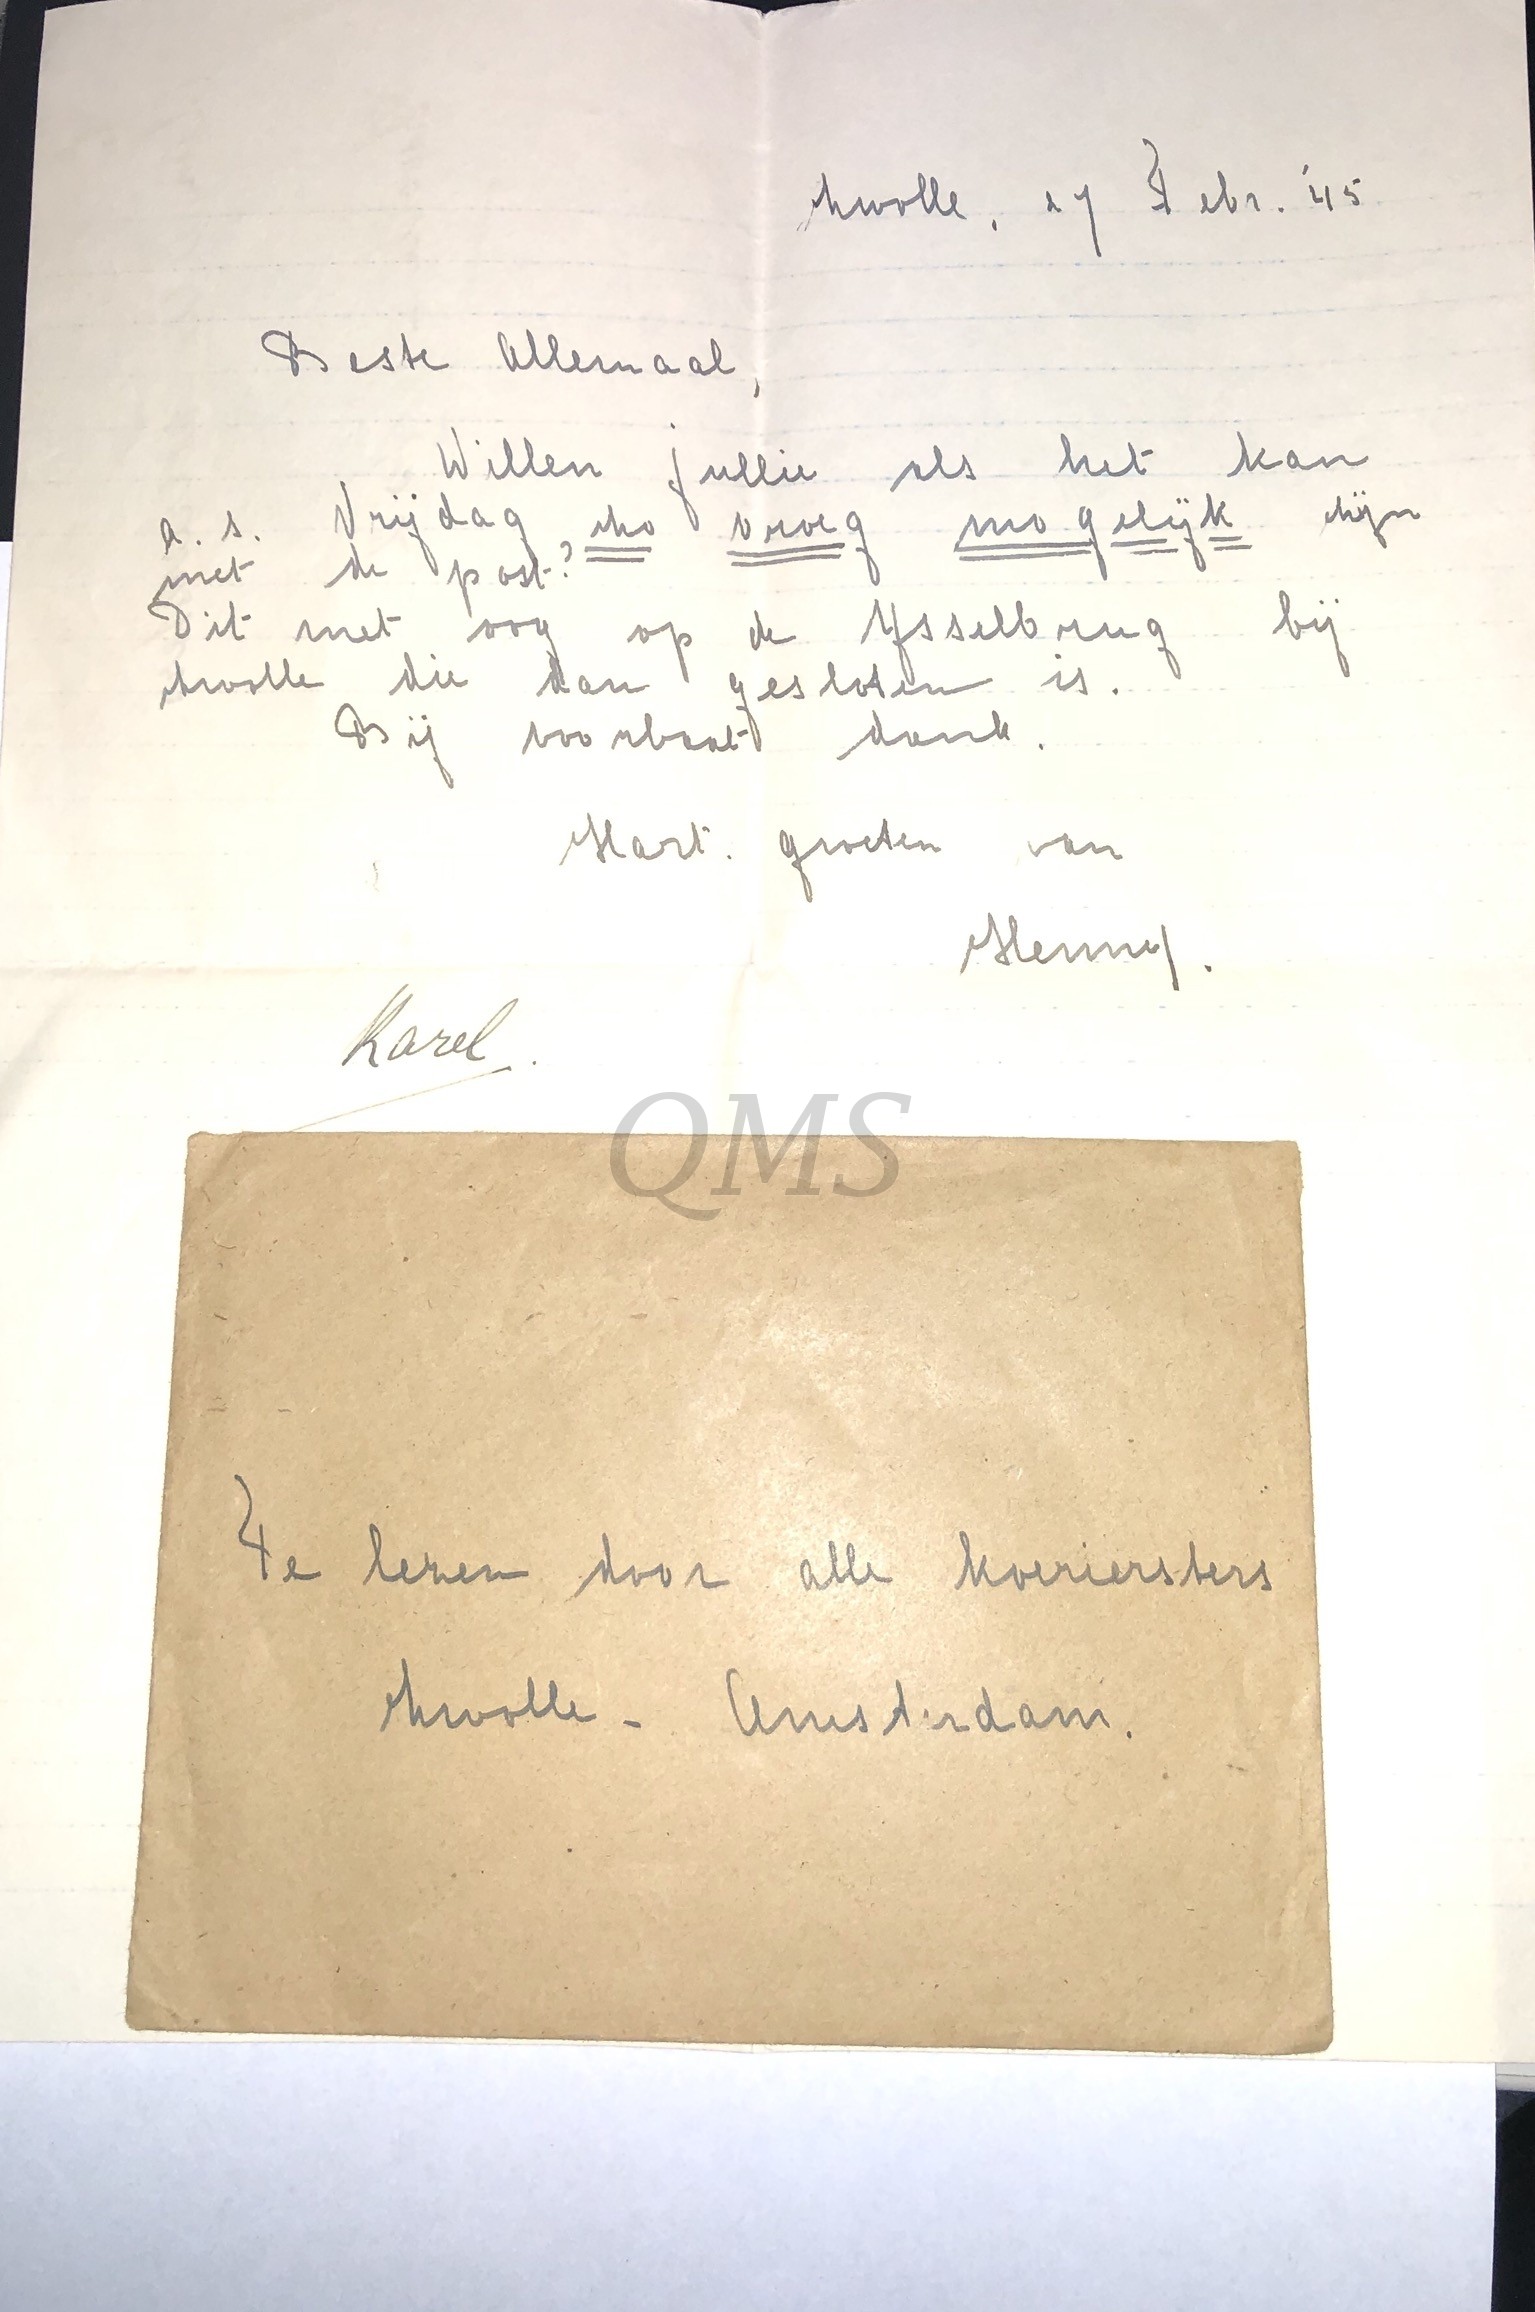 Zwolle, 27 Febr. '45
Beste Allemaal,
Willen jullie als het kan
a.s. Vrijdag zo vroeg mogelijk zijn
met de post?
Dit met oog op de IJsselbrug bij
Zwolle die dan gesloten is.
Bij voorbaat dank.
Hart. groeten van
Henny.
Karel.
QMS
Te lezen door alle koeriersters
Zwolle - Amsterdam.